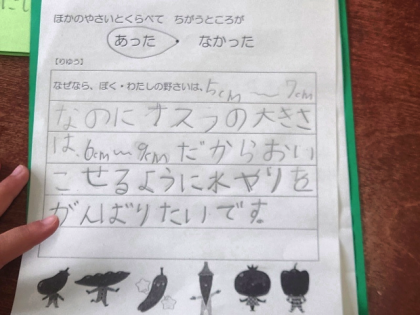 ほかのやさいとくらべて ちがうところが
あった ・ なかった
【りゆう】
なぜなら、ぼく・わたしの野さいは、5cm〜7cm
なのに の大きさ
は、6cm〜9cmだからおい
こせるように水やりを
がんばりたいです。